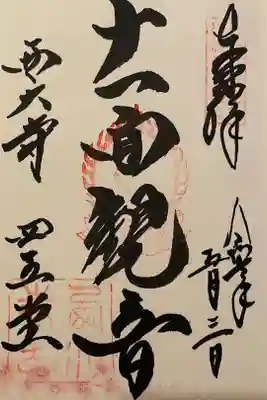 奉拝
令和二年
五月三日
十一面觀音
西大寺
四王堂